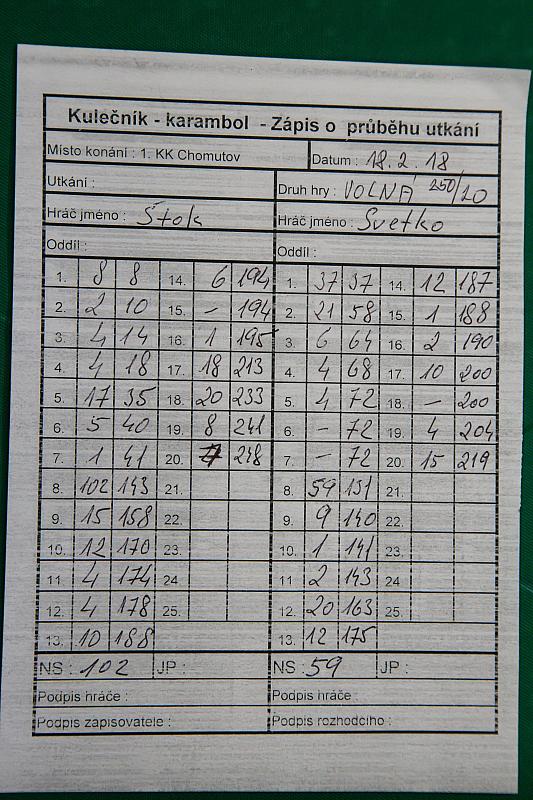 Kulečník - karambol - Zápis o průběhu utkání
Místo konání : 1. KK Chomutov Datum : 18.2.18
Utkání : Druh hry : VOLNÁ 250/20
Hráč jméno : Štok Hráč jméno : Svetko
Oddíl : Oddíl :
1. 8 8 14. 6 194 1. 37 37 14. 12 187
2. 2 10 15. – 194 2. 21 58 15. 1 188
3. 4 14 16. 1 195 3. 6 64 16. 2 190
4. 4 18 17. 18 213 4. 4 68 17. 10 200
5. 17 35 18. 20 233 5. 4 72 18. – 200
6. 5 40 19. 8 241 6. – 72 19. 4 204
7. 1 41 20. 7 248 7. – 72 20. 15 219
8. 102 143 21. 8. 59 131 21.
9. 15 158 22. 9. 9 140 22.
10. 12 170 23. 10. 1 141 23.
11 4 174 24 11 2 143 24
12. 4 178 25. 12. 20 163 25.
13. 10 188 13. 12 175
NS : 102 JP : NS : 59 JP :
Podpis hráče : Podpis hráče :
Podpis zapisovatele : Podpis rozhodcího :